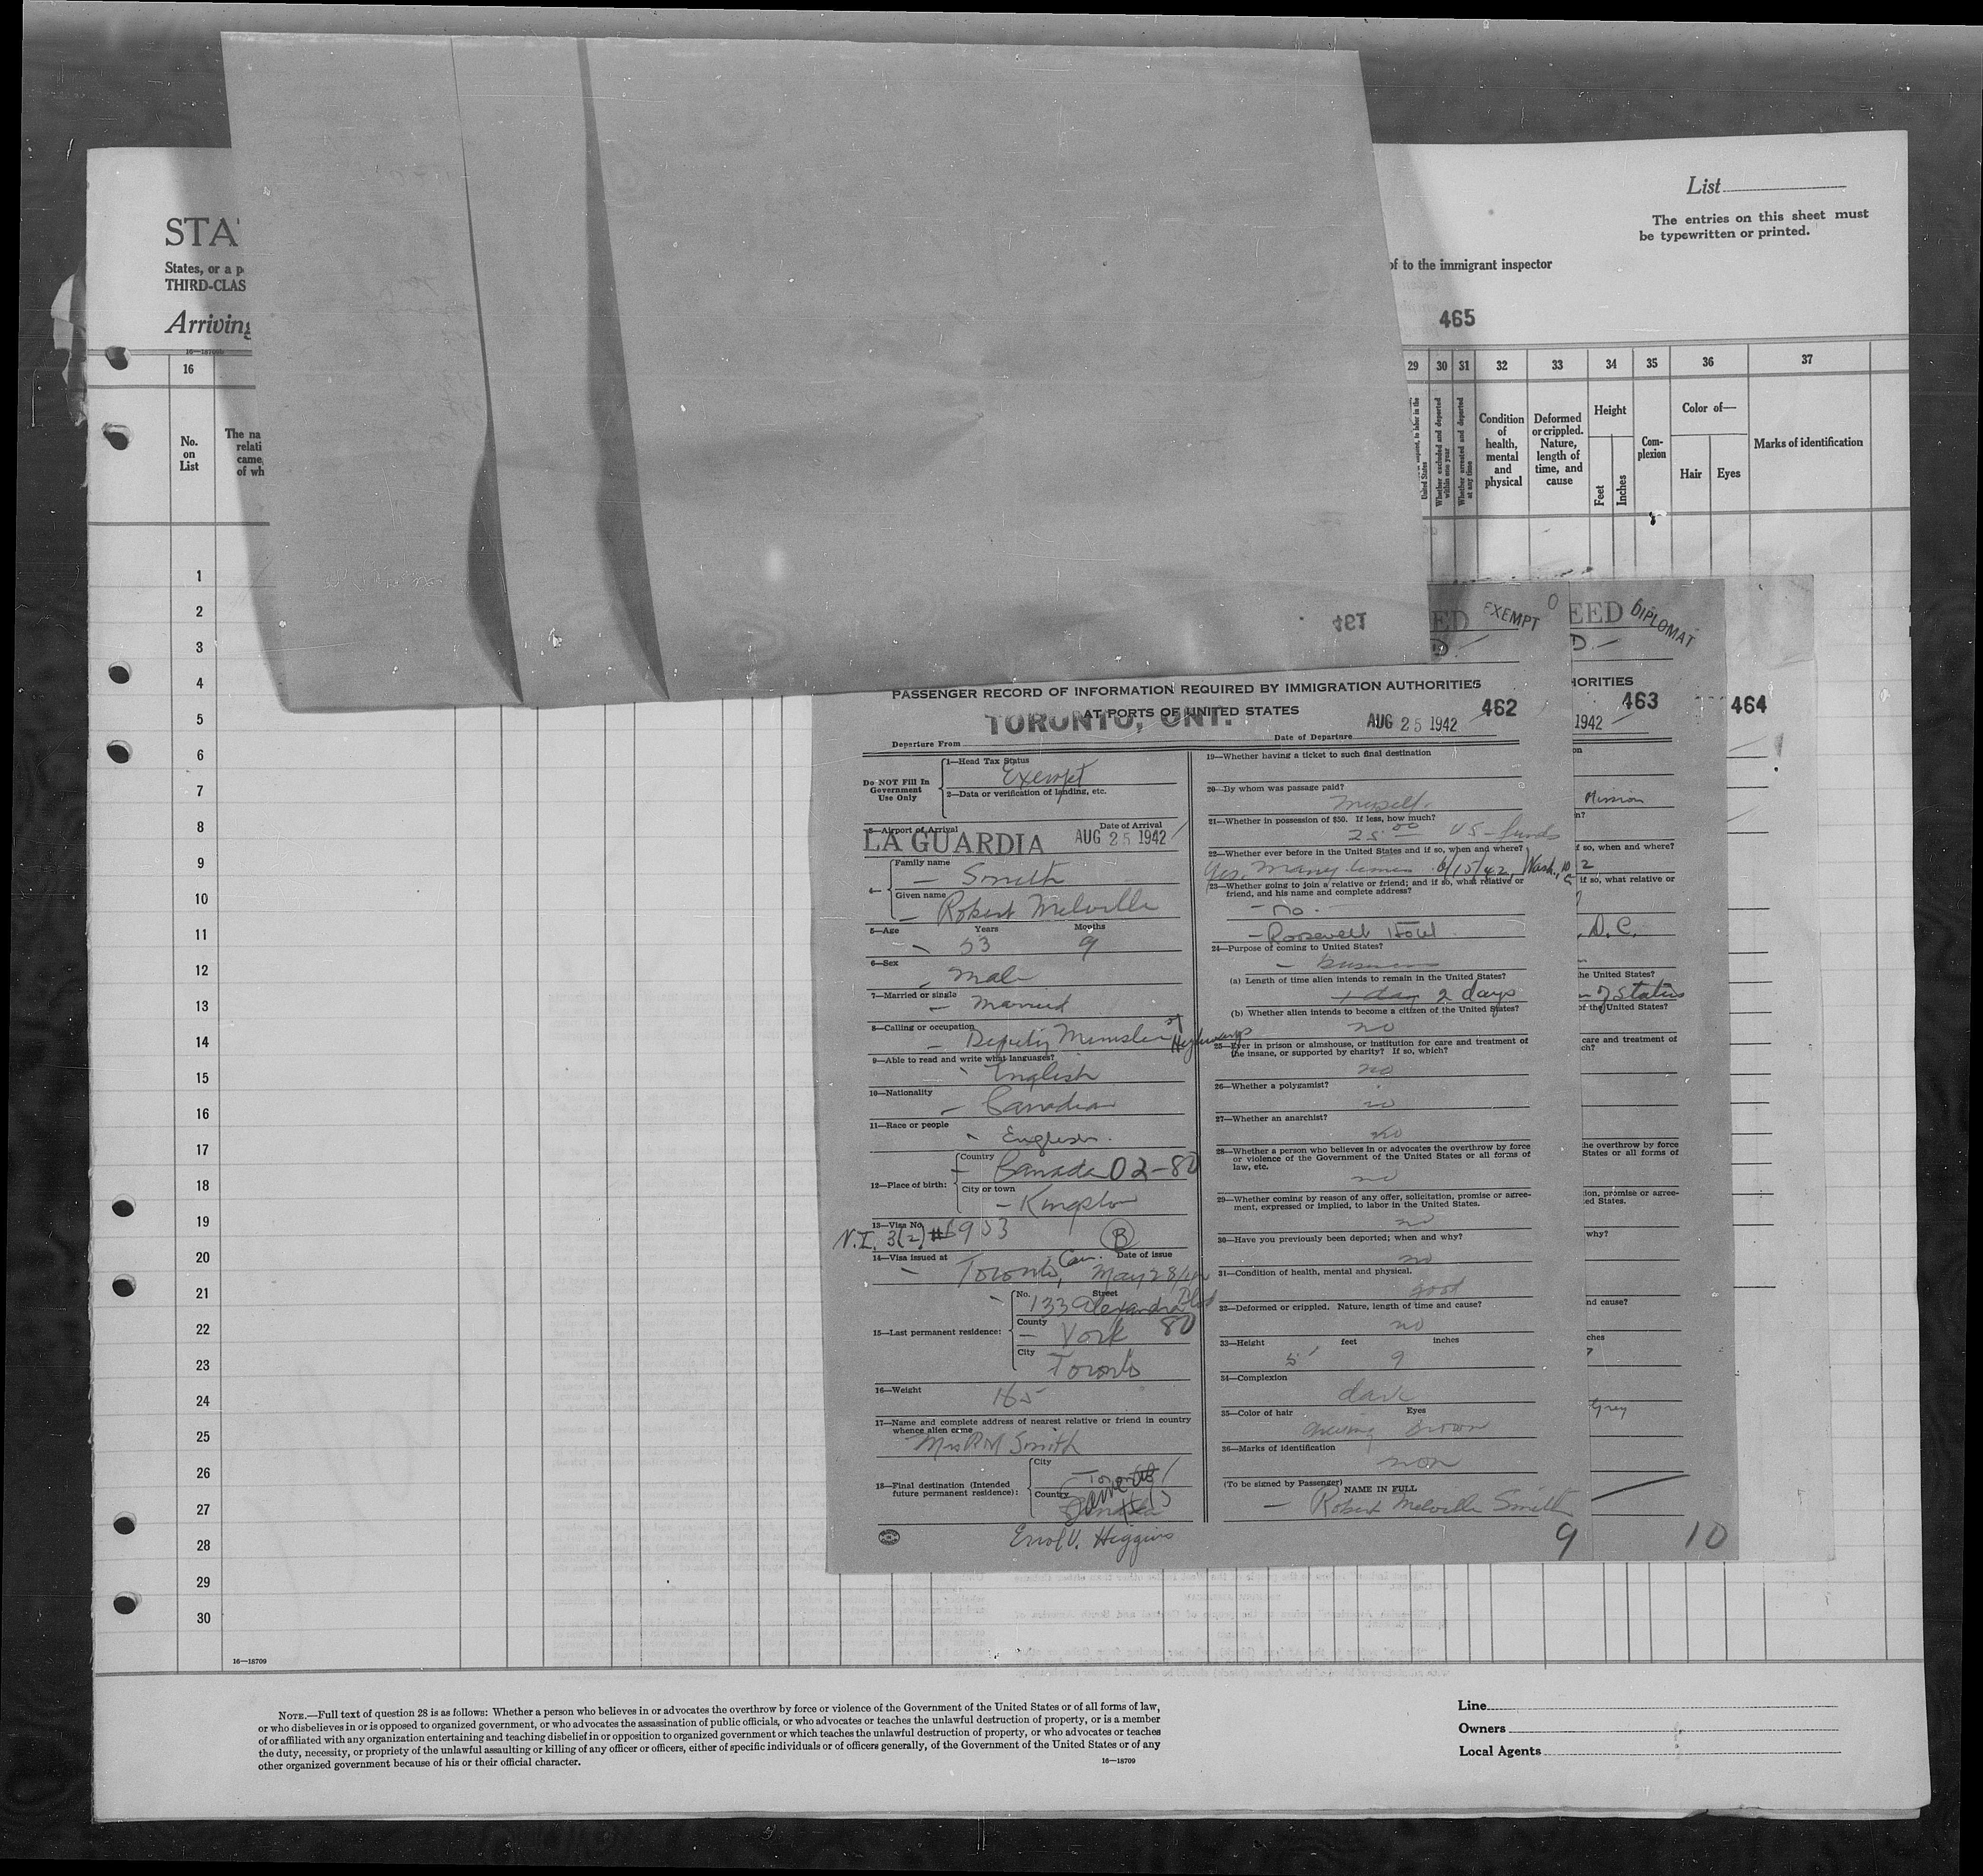 STA
States, or a p
THIRD-CLAS
Arriving
List
The entries on this sheet must
be typewritten or printed.
of to the immigrant inspector
465
16—18709
16
29 30 31 32 33 34 35 36 37
No.
on
List
The na
relati
came
of wh
United States
Whether excluded and deported
within one year
Whether arrested and deported
at any time
Condition
of
health,
mental
and
physical
Deformed
or crippled.
Nature,
length of
time, and
cause
Height
Feet
Inches
Com-
plexion
Color of—
Hair
Eyes
Marks of identification
1
2
3
4
5
6
7
8
9
10
11
12
13
14
15
16
17
18
19
20
21
22
23
24
25
26
27
28
29
30
16—18709
461
ED EXEMPT
D.—
PASSENGER RECORD OF INFORMATION REQUIRED BY IMMIGRATION AUTHORITIES
AT PORTS OF UNITED STATES
462
Departure From TORONTO, ONT.
Date of Departure AUG 25 1942
Do NOT Fill In
Government
Use Only
1—Head Tax Status
Exempt
2—Data or verification of landing, etc.
3—Airport of Arrival
LA GUARDIA
Date of Arrival
AUG 25 1942
4—
Family name
— Smith
Given name
— Robert Melville
5—Age
Years
Months
53 9
6—Sex
Male
7—Married or single
— Married
8—Calling or occupation
— Deputy Minister of Highways
9—Able to read and write what languages?
English
10—Nationality
— Canadian
11—Race or people
English.
12—Place of birth:
Country
— Canada 02-80
City or town
— Kingston
13—Visa No.
N.I. 3(2) #6953 B
14—Visa issued at
Date of issue
Toronto, Can. May 28/42
15—Last permanent residence:
No.
Street
133 Alexandra Blvd
County
— York 80
City
Toronto
16—Weight
165
17—Name and complete address of nearest relative or friend in country
whence alien came
Mrs R M Smith
18—Final destination (Intended
future permanent residence):
City
Toronto
Country
Canada
Errol V. Higgins
19—Whether having a ticket to such final destination
20—By whom was passage paid?
Myself.
21—Whether in possession of $50. If less, how much?
25.00 US — funds
22—Whether ever before in the United States and if so, when and where?
Yes, Many times 6/15/42, Wash., D.C.
23—Whether going to join a relative or friend; and if so, what relative or
friend, and his name and complete address?
— no.
— Roosevelt Hotel
24—Purpose of coming to United States?
— business
(a) Length of time alien intends to remain in the United States?
1 day 2 days
(b) Whether alien intends to become a citizen of the United States?
no
25—Ever in prison or almshouse, or institution for care and treatment of
the insane, or supported by charity? If so, which?
no
26—Whether a polygamist?
no
27—Whether an anarchist?
no
28—Whether a person who believes in or advocates the overthrow by force
or violence of the Government of the United States or all forms of
law, etc.
no
29—Whether coming by reason of any offer, solicitation, promise or agree-
ment, expressed or implied, to labor in the United States.
no
30—Have you previously been deported; when and why?
no
31—Condition of health, mental and physical.
good
32—Deformed or crippled. Nature, length of time and cause?
no
33—Height
feet
inches
5' 9
34—Complexion
dark
35—Color of hair
Eyes
Greying Brown
36—Marks of identification
non
(To be signed by Passenger)
NAME IN FULL
— Robert Melville Smith
9
EED DIPLOMAT
D.—
HORITIES
463
1942
on
Mission
n?
f so, when and where?
2
if so, what relative or
D.C.
he United States?
n of Status
of the United States?
care and treatment of
ch?
he overthrow by force
States or all forms of
ion, promise or agree-
ed States.
why?
nd cause?
ches
7
Grey
10
464
NOTE.—Full text of question 28 is as follows: Whether a person who believes in or advocates the overthrow by force or violence of the Government of the United States or of all forms of law,
or who disbelieves in or is opposed to organized government, or who advocates the assassination of public officials, or who advocates or teaches the unlawful destruction of property, or is a member
of or affiliated with any organization entertaining and teaching disbelief in or opposition to organized government or which teaches the unlawful destruction of property, or who advocates or teaches
the duty, necessity, or propriety of the unlawful assaulting or killing of any officer or officers, either of specific individuals or of officers generally, of the Government of the United States or of any
other organized government because of his or their official character.
16—18709
Line
Owners
Local Agents